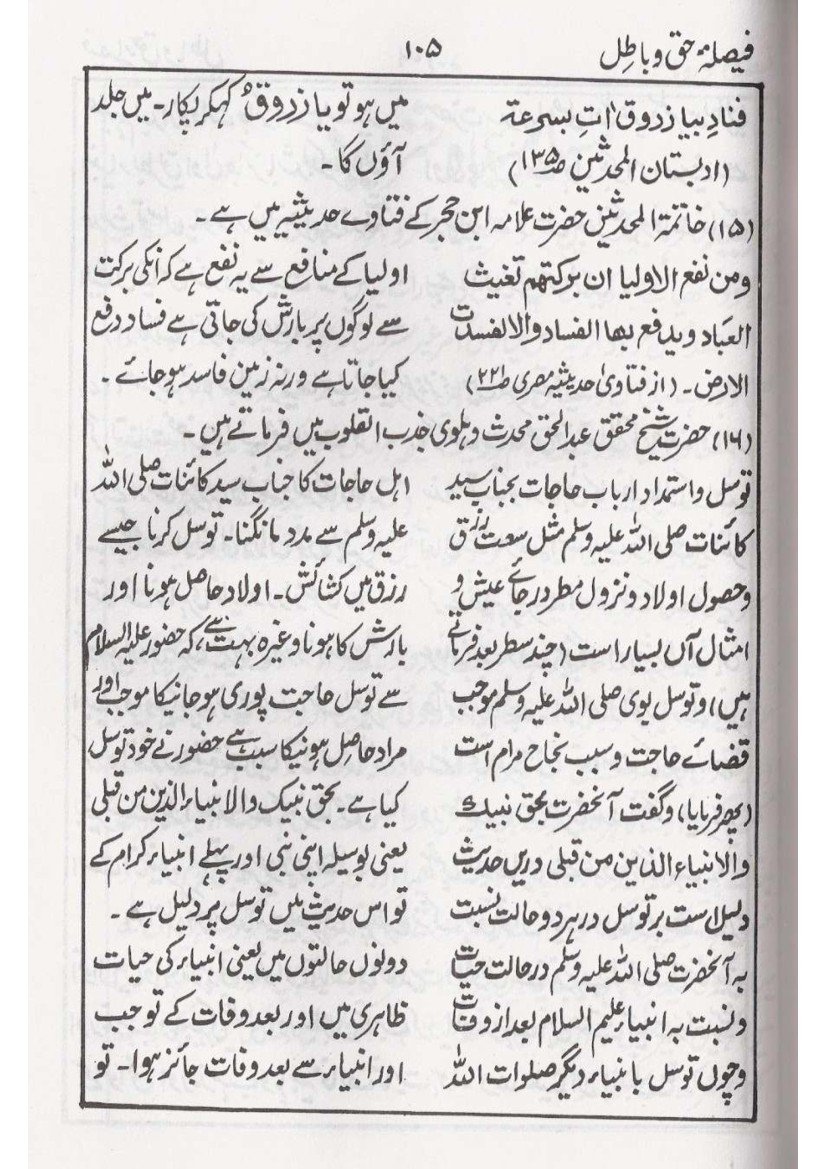 فیصلۂ حق و باطل ۱۰۵
فناد بیا زدوق اٰتِ بسرعۃ میں ہو تو یا زدوقُ کہکر پکار۔ میں جلد
(ادبستان المحدثین صـ۱۳۵) آؤں گا۔
(۱۵) خاتمۃ المحدثین حضرت علامہ ابن حجر کے فتاوے حدیثیہ میں ہے۔
ومن نفع الاولیا ان برکتھم تغیث اولیا کے منافع سے یہ نفع ہے کہ انکی برکت
العباد ویدفع بھا الفساد والا لفسدت سے لوگوں پر بارش کی جاتی ہے فساد دفع
الارض۔ (از فتاویٰ حدیثیہ مصری صـ۲۲۱) کیا جاتا ہے ورنہ زمین فاسد ہو جائے۔
(۱۶) حضرت شیخ محقق عبدالحق محدث دہلوی جذب القلوب میں فرماتے ہیں۔
توسل و استمداد ارباب حاجات بجناب سید اہل حاجات کا جناب سید کائنات صلی اللہ
کائنات صلی اللہ علیہ وسلم مثل سعت رزق علیہ وسلم سے مدد مانگنا۔ توسل کرنا جیسے
وحصول اولاد و نزول مطر و رجائے عیش و رزق میں کشائش۔ اولاد حاصل ہونا اور
امثال آں بسیار است (چند سطر بعد فرماتے بارش کا ہونا وغیرہ بہت ہے، کہ حضور علیہ السلام
ہیں) و توسل بوی صلی اللہ علیہ وسلم موجب سے توسل حاجت پوری ہو جانیکا موجب اور
قضائے حاجت و سبب نجاح مرام است مراد حاصل ہونیکا سبب ہے حضور نے خود توسل
(پھر فرمایا) و گفت آنحضرت بحق نبیک کیا ہے۔ بحق نبیک والانبیاء الذین من قبلی
والانبیاء الذین من قبلی دریں حدیث یعنی بوسیلہ اپنی نبی اور پہلے انبیاء کرام کے
دلیل است بر توسل در ہر دو حالت نسبت تو اس حدیث میں توسل پر دلیل ہے۔
بہ آنحضرت صلی اللہ علیہ وسلم در حالت حیات دونوں حالتوں میں یعنی انبیاء کی حیات
و نسبت بہ انبیاء علیہم السلام بعد از وفات ظاہری میں اور بعد وفات کے تو جب
و چوں توسل بانبیاء دیگر صلوات اللہ اور انبیاء سے بعد وفات جائز ہوا۔ تو